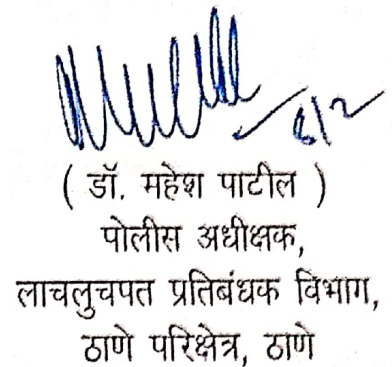 6/2
( डॉ. महेश पाटील )
पोलीस अधीक्षक,
लाचलुचपत प्रतिबंधक विभाग,
ठाणे परिक्षेत्र, ठाणे